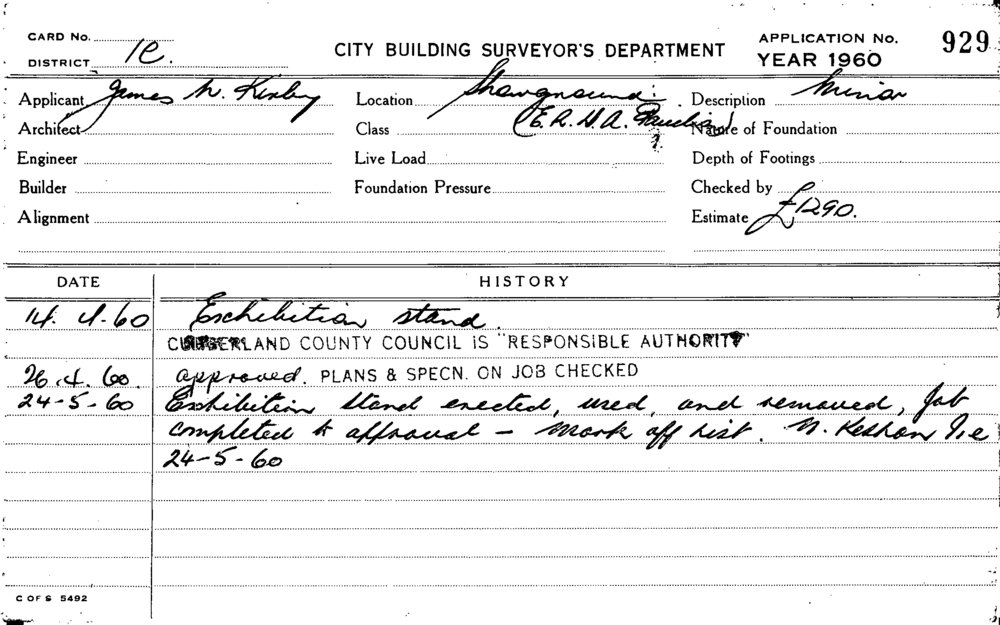 CARD No.
DISTRICT 1C.
CITY BUILDING SURVEYOR'S DEPARTMENT
APPLICATION No. 929
YEAR 1960
Applicant James N. Kirby Location Showground Description Minor
Architect Class (E. R. D. A. Nature of Foundation
Engineer Live Load Depth of Footings
Builder Foundation Pressure Checked by
Alignment Estimate £1290.
DATE HISTORY
14. 4. 60 Exhibition stand.
CUMBERLAND COUNTY COUNCIL IS "RESPONSIBLE AUTHORITY"
26. 4. 60. approved. PLANS & SPECN. ON JOB CHECKED
24-5-60 Exhibition stand erected, used, and removed, Job
completed to approval - Mark off list.
24-5-60
C OF S 5492